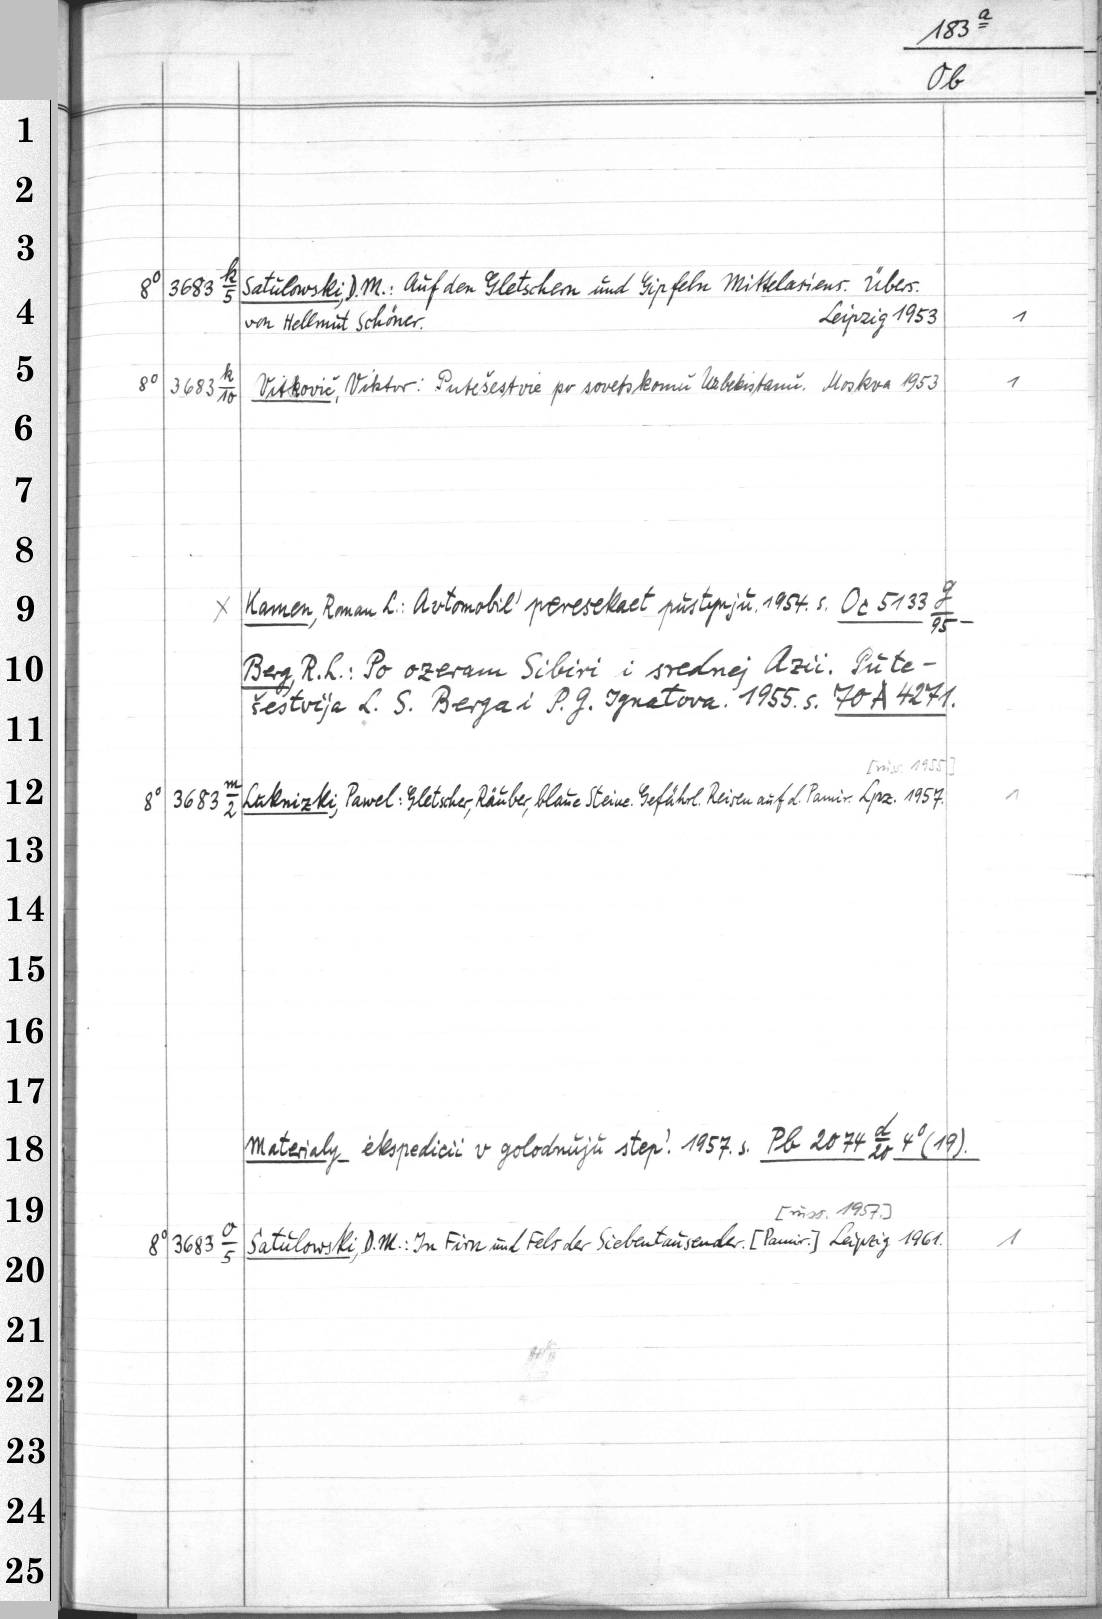 183 a
Ob
1
2
3
8° 3683 k/5 Satulowski, D.M.: Auf den Gletschern und Gipfeln Mittelasiens. Übers.
4
von Hellmut Schöner. Leipzig 1953 1
5
8° 3683 k/10 Vitkovič, Viktor: Putešestvie po sovetskomu Uzbekistanu. Moskva 1953 1
6
7
8
9
x Kamen, Roman L.: Avtomobil' peresekaet pustynju. 1954. s. Oc 5133 g/95 –
10
Berg, R.L.: Po ozeram Sibiri i srednej Azii. Pute-
šestvija L. S. Berga i P. G. Ignatova. 1955. s. 70 A 4271.
11
[russ. 1955]
12
8° 3683 m/2 Luknizki, Pawel: Gletscher, Räuber, blaue Steine. Gefährl. Reisen auf d. Pamir. Lpz. 1957. 1
13
14
15
16
17
18
Materialy ėkspedicii v golodnuju step'. 1957. s. Pb 2074 d/20 4° (19).
19
[russ. 1957.]
8° 3683 o/5 Satulowski, D.M.: In Firn und Fels der Siebentausender. [Pamir.] Leipzig 1961. 1
20
21
22
23
24
25